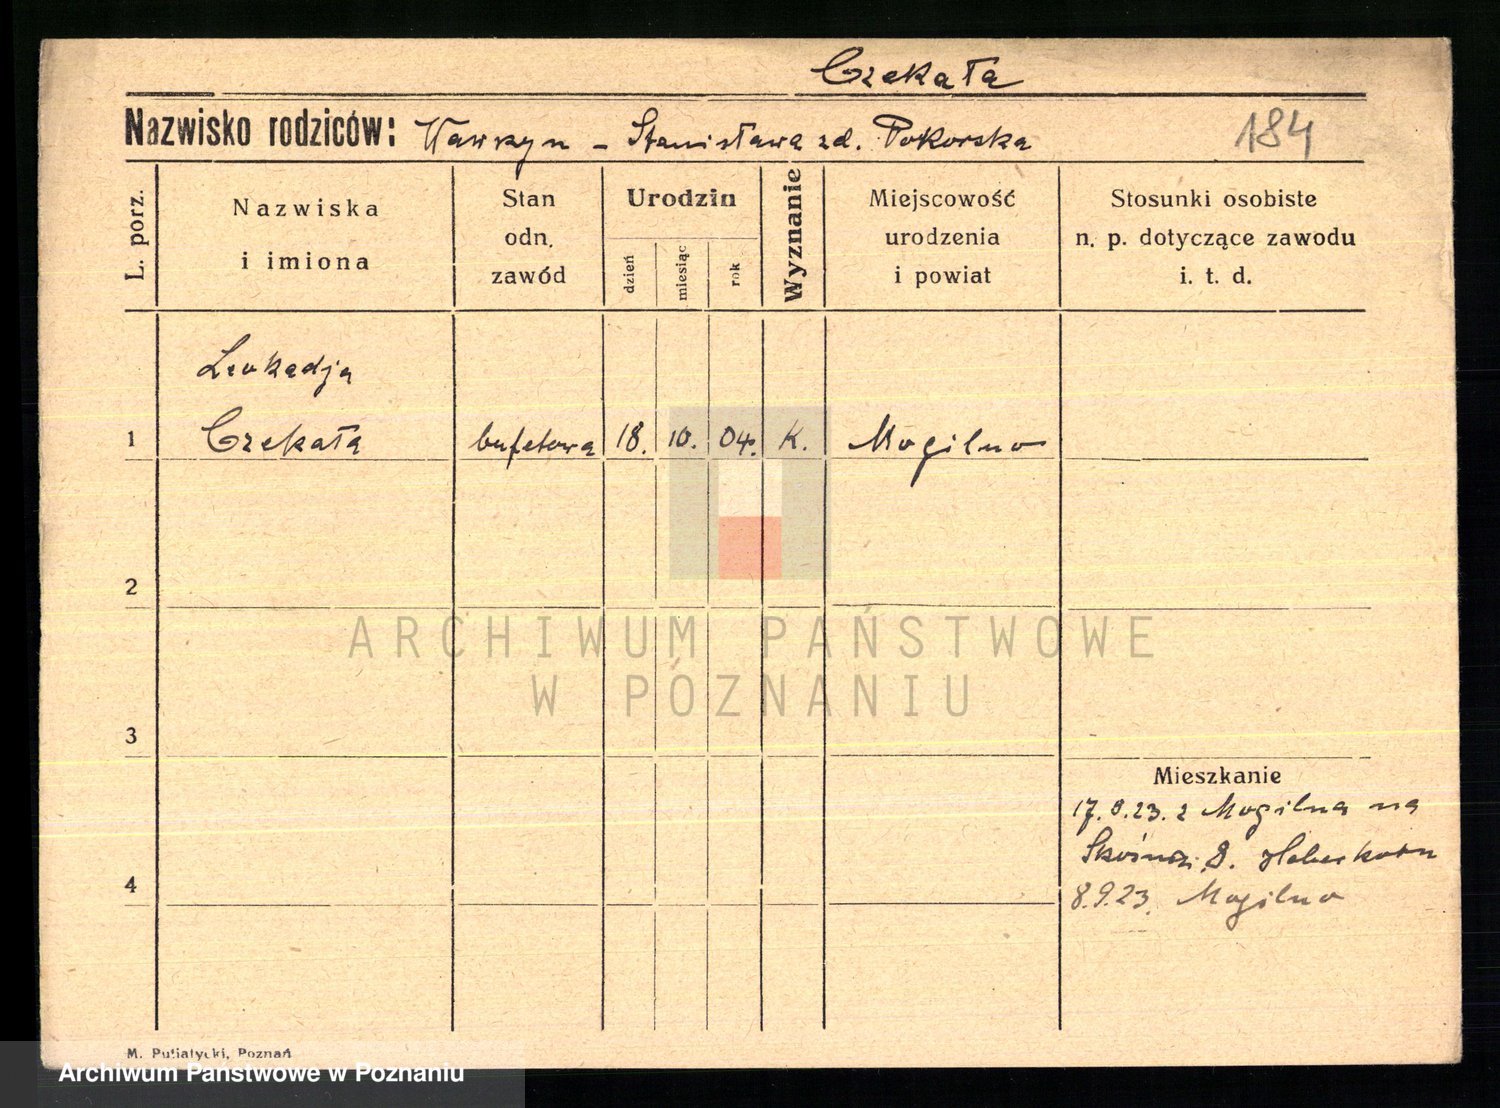 Czekała
Nazwisko rodziców: Wawrzyn - Stanisława zd. Pokorska
184
L. porz.
Nazwiska
i imiona
Stan
odn.
zawód
Urodzin
dzień
miesiąc
rok
Wyznanie
Miejscowość
urodzenia
i powiat
Stosunki osobiste
n. p. dotyczące zawodu
i. t. d.
Leokadja
1 Czekała bufetowa 18. 10. 04. K. Mogilno
2
ARCHIWUM PAŃSTWOWE
W POZNANIU
3
Mieszkanie
17. 8. 23. z Mogilna na
8.
4
8.9.23. Mogilno
M. Putiatycki, Poznań
Archiwum Państwowe w Poznaniu